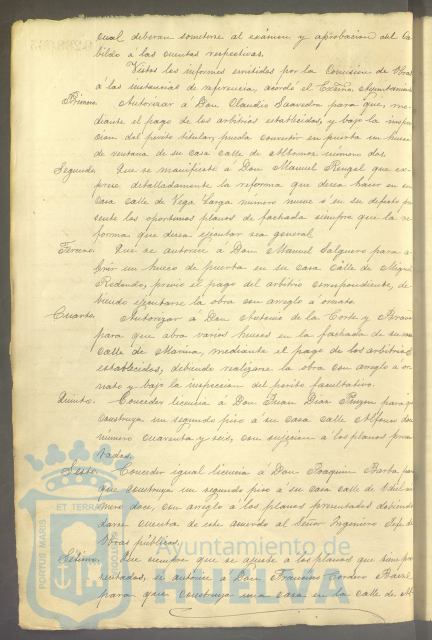 cual deberan someterse al exámen y aprobacion del Ca-
bildo á las cuentas respectivas.
Vistos los informes emitidos por la Comision de Obras
á las instancias de referencia, acordó el Excmo. Ayuntamiento
Primero. Autorizar á Don Claudio Saavedra para que, me-
diante el pago de los arbitrios establecidos, y bajo la inspec-
cion del perito titular, pueda convertir en puerta un hueco
de ventana de su casa calle de número dos.
Segundo. Que se manifieste á Don Manuel Rengel que ex-
prese detalladamente la reforma que desea hacer en su
casa calle de Vega Larga numero nueve ó en su defecto pre-
sente los oportunos planos de fachada siempre que la re-
forma que desea ejecutar sea general.
Tercero. Que se autorice á Don Manuel Salguero para a-
brir un hueco de puerta en su casa calle de Miguel
Redondo, previo el pago del arbitrio correspondiente, de-
biendo ejecutarse la obra con arreglo á ornato.
Cuarto. Autorizar á Don Antonio de la Corte y Bravo
para que abra varios huecos en la fachada de su casa
calle de Marina, mediante el pago de los arbitrios
establecidos, debiendo realizarse la obra con arreglo á or-
nato y bajo la inspeccion del perito facultativo.
Quinto. Conceder licencia á Don Juan Diaz para que
construya un segundo piso á su casa calle Alfonso doce
número cuarenta y seis, con sujecion á los planos presen-
tados.
Sesto. Conceder igual licencia á Don Joaquin Barba para
que construya un segundo piso á su casa calle de nú-
mero doce, con arreglo á los planos presentados debiendo
darse cuenta de este acuerdo al Señor Ingeniero Jefe de
Obras públicas.
Sétimo. Que siempre que se ajuste á los planos que tiene pre-
sentados, se autorice á Don Francisco Cordero
para que construya una casa en la calle de
PORTUS MARIS
ET TERRAE
CUSTODIA
Ayuntamiento de
HUELVA